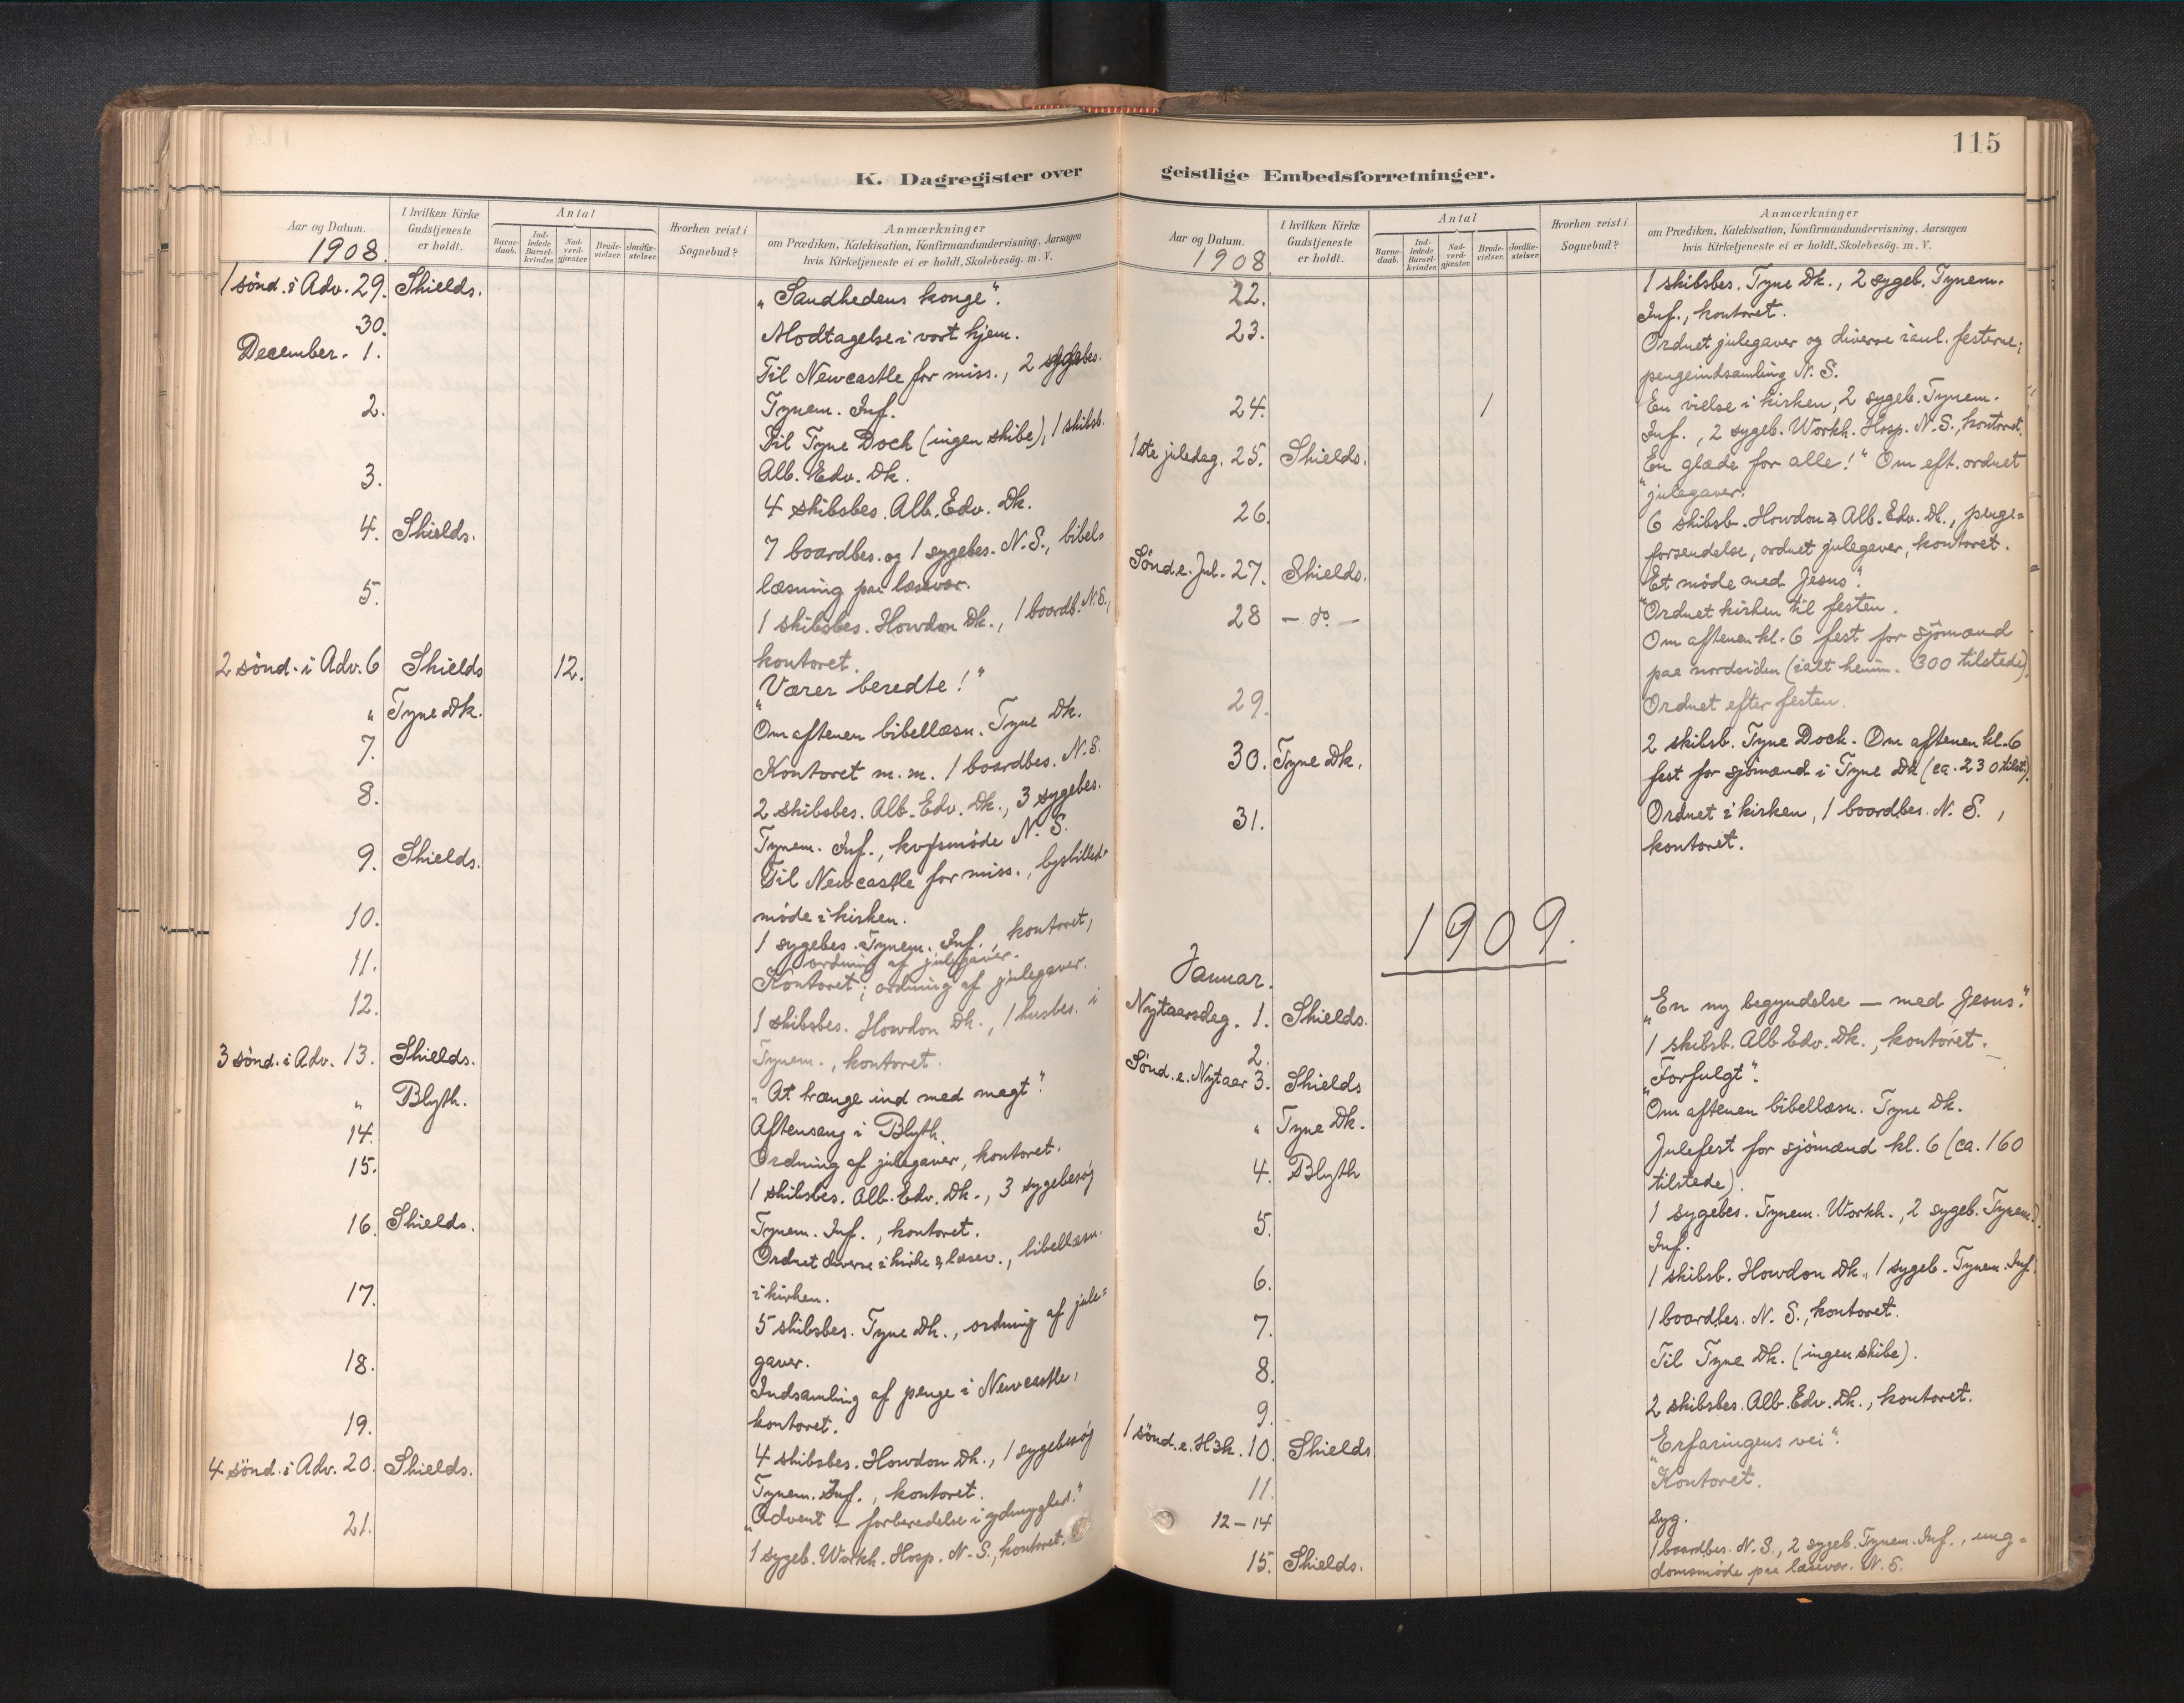 K. Dagregister over
Aar og Datum.
I hvilken Kirke Gudstjeneste er holdt.
Antal
Barne-daab.
Ind-ledede Barsel-kvinder.
Nad-verd-gjæster.
Brude-vielser.
Jordfæ-stelser.
Hvorhen reist i Sognebud?
Anmærkninger
om Prædiken, Katekisation, Konfirmandundervisning, Aarsagen
hvis Kirketjeneste ei er holdt, Skolebesøg. m. V.
1908.
1 sønd. i Adv. 29. Shields. „Sandhedens konge“.
30. Modtagelse i vort hjem.
December. 1. Til Newcastle for miss., 2 sygebes.
Tynem. Inf.
2. Til Tyne Dock (ingen skibe), 1 skibsb.
Alb. Edv. Dk.
3. 4 skibsbes. Alb. Edv. Dk.
4. Shields. 7 boardbes. og 1 sygebes. N.S., bibel=
læsning paa læsevær.
5. 1 skibsbes. Howdon Dk., 1 boardb. N.S.,
kontoret.
2 sønd. i Adv. 6 Shields 12. „Værer beredte!“
„ Tyne Dk. Om aftenen bibellæsn. Tyne Dk.
7. Kontoret m.m. 1 boardbes. N.S.
8. 2 skibsbes. Alb. Edv. Dk., 3 sygebes.
Tynem. Inf., korpsmøde N.S.
9. Shields. Til Newcastle for miss., lysbilled=
møde i kirken.
10. 1 sygebes. Tynem. Inf., kontoret,
ordning af julegaver.
11. Kontoret; ordning af julegaver.
12. 1 skibsbes. Howdon Dk., 1 husbes. i
Tynem., kontoret.
3 sønd. i Adv. 13. Shields. „At trænge ind med magt“.
„ Blyth. Aftensang i Blyth.
14. Ordning af julegaver, kontoret.
15. 1 skibsbes. Alb. Edv. Dk., 3 sygebesøg
Tynem. Inf., kontoret.
16. Shields. Ordnet diverse i kirke & læsev., bibellæsn.
i kirken.
17. 5 skibsbes. Tyne Dk., ordning af jule=
gaver.
18. Indsamling af penge i Newcastle,
kontoret.
19. 4 skibsbes. Howdon Dk., 1 sygebesøg
Tynem. Inf., kontoret.
4 sønd. i Adv. 20. Shields. „Advent – forberedelse i ydmyghed.“
21. 1 sygeb. Workh. Hosp. N.S., kontoret.
115
geistlige Embedsforretninger.
Aar og Datum.
I hvilken Kirke Gudstjeneste er holdt.
Antal
Barne-daab.
Ind-ledede Barsel-kvinder.
Nad-verd-gjæster.
Brude-vielser.
Jordfæ-stelser.
Hvorhen reist i Sognebud?
Anmærkninger
om Prædiken, Katekisation, Konfirmandundervisning, Aarsagen
hvis Kirketjeneste ei er holdt, Skolebesøg. m. V.
1908
22. 1 skibsbes. Tyne Dk., 2 sygeb. Tynem.
Inf., kontoret.
23. Ordnet julegaver og diverse i anl. festerne;
pengeindsamling N.S.
24. 1 En vielse i kirken, 2 sygeb. Tynem.
Inf., 2 sygeb. Workh. Hosp. N.S., kontoret.
1ste juledag. 25. Shields. „En glæde for alle!“ Om eft. ordnet
julegaver.
26. 6 skibsb. Howdon & Alb. Edv. Dk., penge=
forsendelse, ordnet julegaver, kontoret.
Sønd. e. Jul. 27. Shields. „Et møde med Jesus“.
28 – do – Ordnet kirken til festen.
Om aftenen kl. 6 fest for sjømænd
paa nordsiden (ialt henim. 300 tilstede).
29. Ordnet efter festen.
30. Tyne Dk. 2 skibsb. Tyne Dock. Om aftenen kl. 6
fest for sjømænd i Tyne Dk (ca. 230 tilst.).
31. Ordnet i kirken, 1 boardbes. N.S.,
kontoret.
1909.
Januar.
Nytaarsdag. 1. Shields. „En ny begyndelse – med Jesus.“
2. 1 skibsb. Alb Edv. Dk., kontoret.
Sønd. e. Nytaar 3. Shields „Forfulgt“.
„ Tyne Dk. Om aftenen bibellæsn. Tyne Dk.
4. Blyth Julefest for sjømænd kl. 6 (ca. 160
tilstede).
5. 1 sygebes. Tynem. Workh., 2 sygeb. Tynem.
Inf.
6. 1 skibsb. Howdon Dk., 1 sygeb. Tynem. Inf.
7. 1 boardbes. N.S., kontoret.
8. Til Tyne Dk. (ingen skibe).
9. 2 skibsbes. Alb. Edv. Dk., kontoret.
1 sønd. e. H3k. 10. Shields „Erfaringens vei“.
11. Kontoret.
12–14 Syg.
15. Shields. 1 boardbes. N.S., 2 sygeb. Tynem. Inf., ung=
domsmøde paa læsevær. N.S.